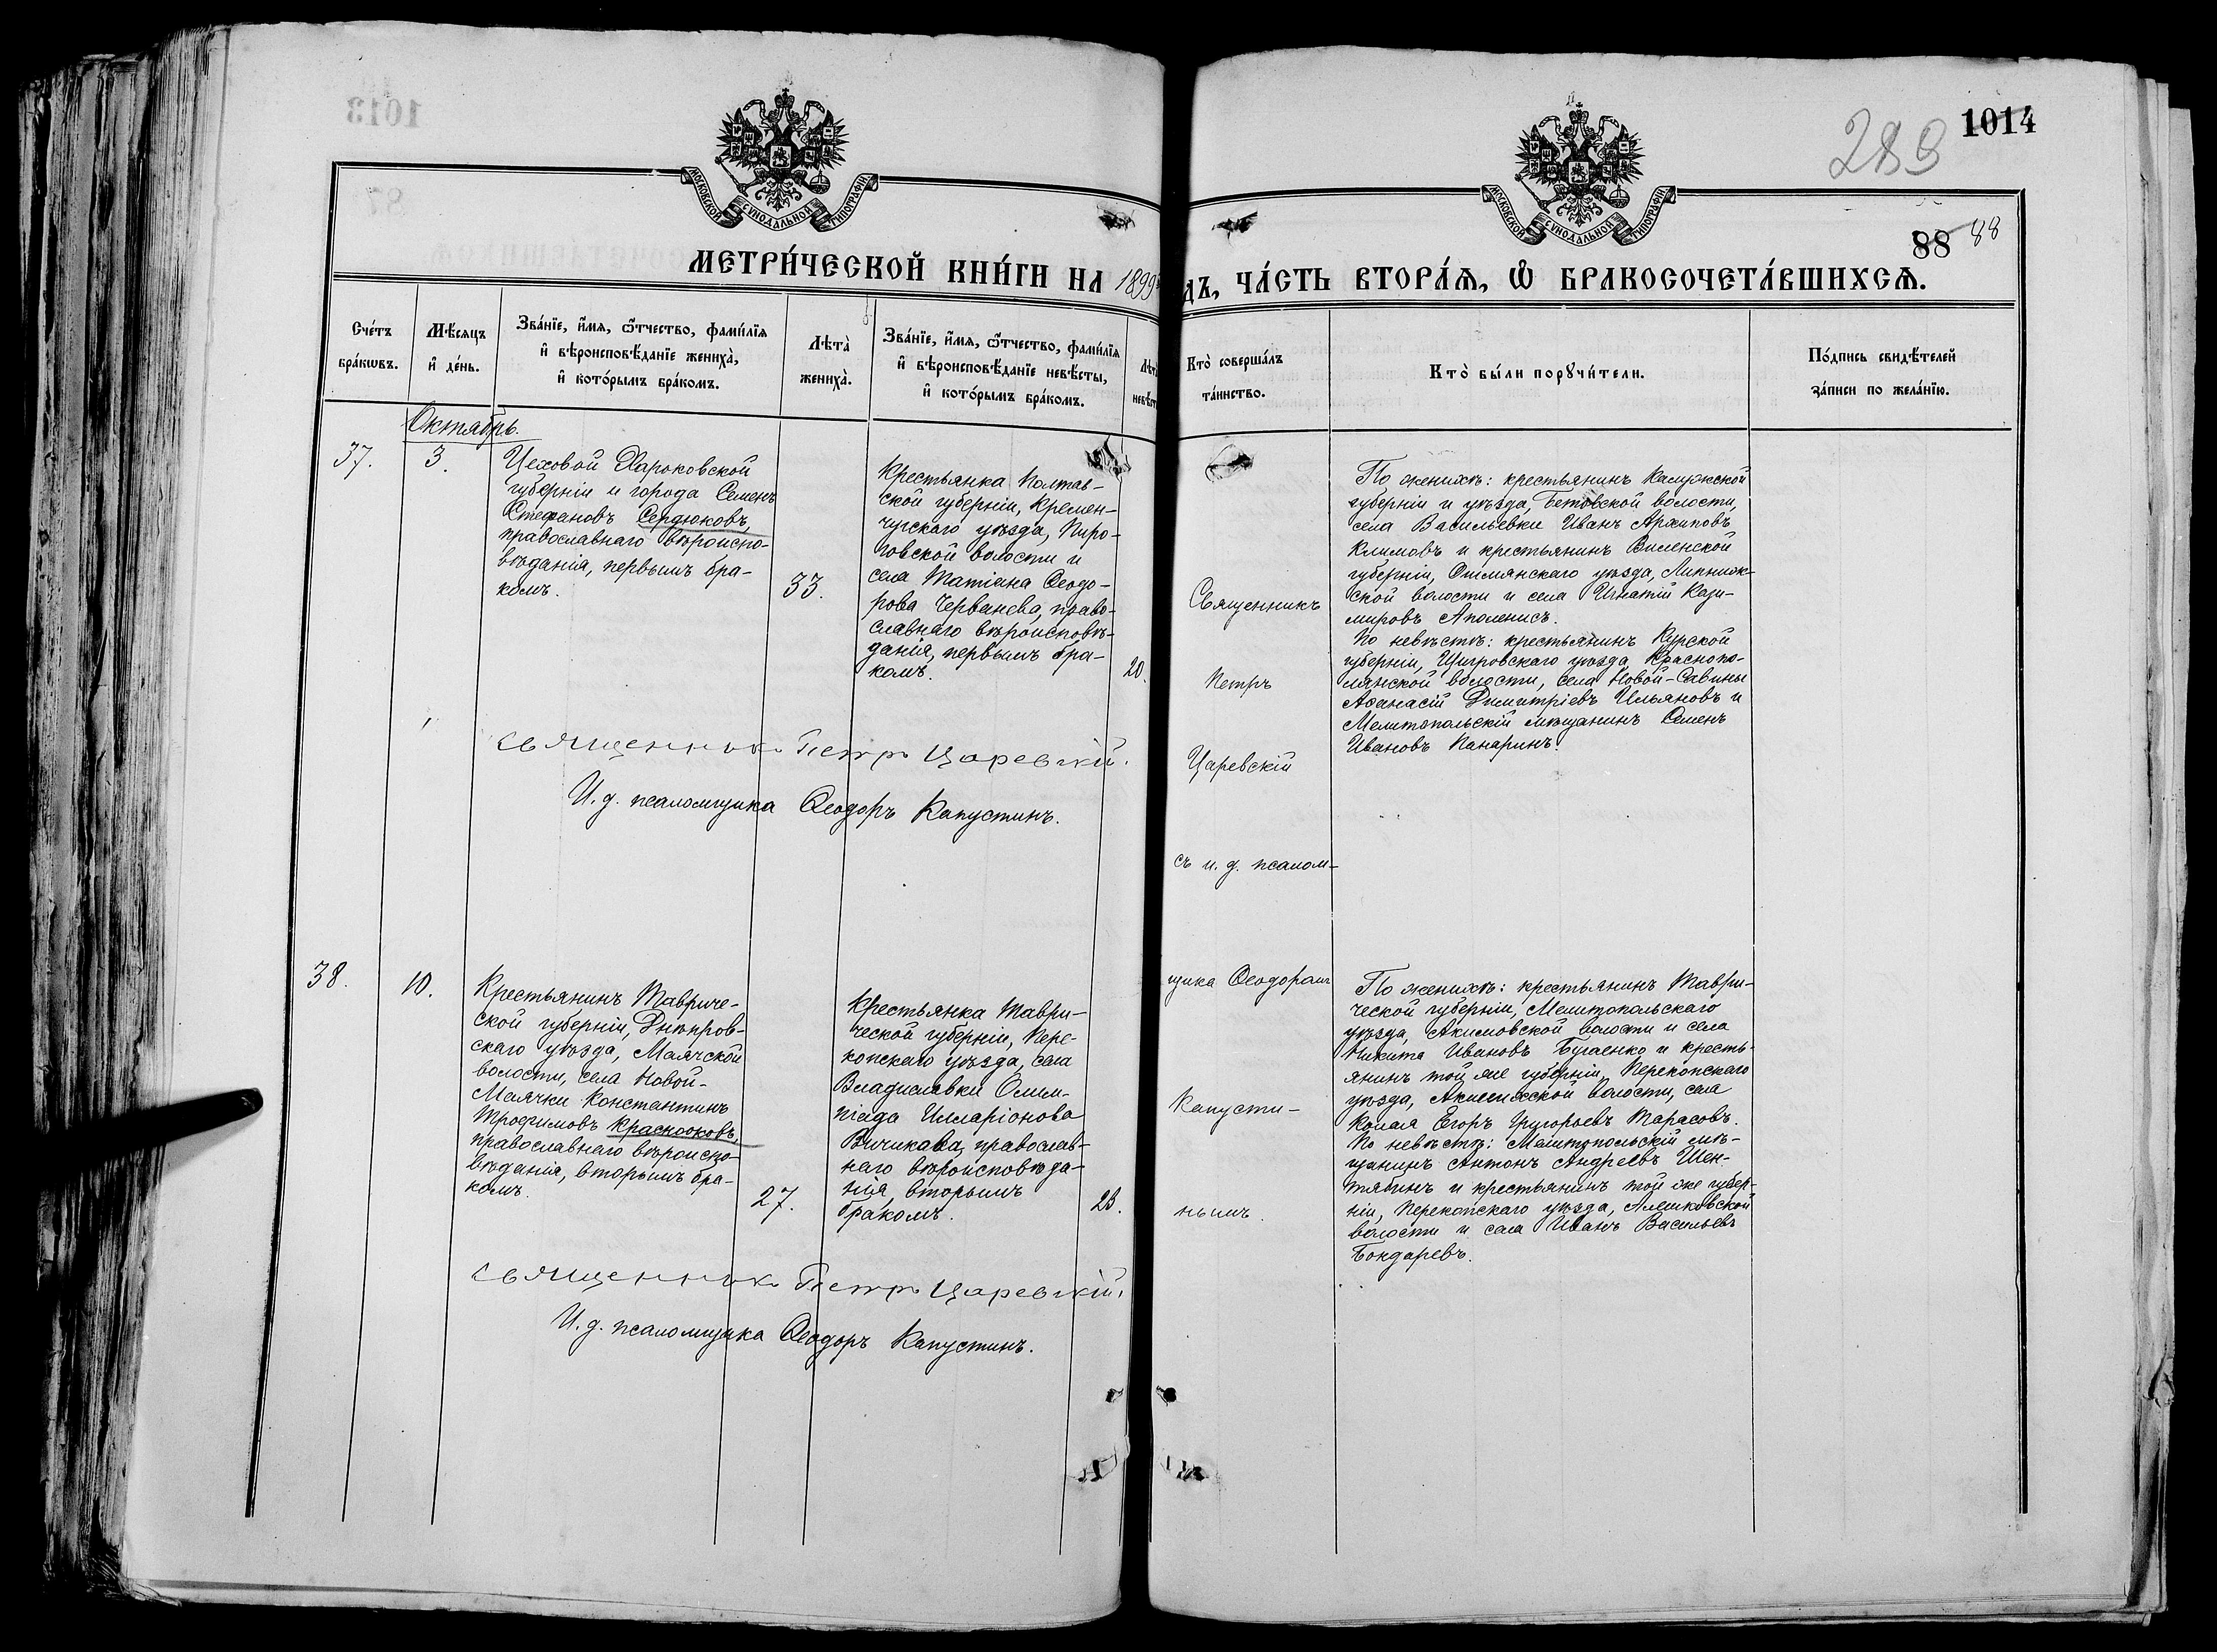 1014
289
МОСКОВСКОЙ СѴНОДАЛЬНОЙ ТИПОГРАФІИ
МОСКОВСКОЙ СѴНОДАЛЬНОЙ ТИПОГРАФІИ
88 88
МЕТРИ́ЧЕСКОЙ КНИ́ГИ НА 1899
ДЪ, ЧА́СТЬ ВТОРА́Ѧ, Ѽ БРАКОСОЧЕТА́ВШИХСѦ.
Сче́тъ
бра́кѡвъ.
Мѣ́сяцъ
и҆ де́нь.
Зва́нїе, и҆́мя, ѻ҆́тчество, фами́лїя
и҆ вѣроисповѣ́данїе жениха̀,
и҆ кото́рымъ бра́комъ.
Лѣта̀
жениха̀.
Зва́нїе, и҆́мя, ѻ҆́тчество, фами́лїя
и҆ вѣроисповѣ́данїе невѣ́сты,
и҆ кото́рымъ бра́комъ.
Кто̀ соверша́лъ
та́инство.
Кто̀ бы́ли порꙋчи́тели.
По́дпись свидѣ́телей
за́писи по жела́нїю.
Октябрь.
37.
3.
Цеховой Харьковской
губерніи и города Семенъ
Стефановъ Сердюковъ,
православнаго вѣроиспо-
вѣданія, первымъ бра-
комъ.
33.
Крестьянка Полтав-
ской губерніи, Кремен-
чугскаго уѣзда, Пиро-
говской волости и
села Татіана Ѳеодо-
рова Червакева, право-
славнаго вѣроисповѣ-
данія, первымъ бра-
комъ.
20.
Священникъ Петръ Царевскій.
И. д. псаломщика Ѳеодоръ Капустинъ.
Священникъ
Петръ
Царевскій
съ и. д. псалом-
щика Ѳеодоромъ
Капусти-
нымъ.
По женихѣ: крестьянинъ Калужской
губерніи и уѣзда, Бетовской волости,
села Васильевки Иванъ Архиповъ
Климовъ и крестьянинъ Виленской
губерніи, Ошмянскаго уѣзда, Липниж-
ской волости и села Игнатій Кази-
мировъ Аполенисъ.
По невѣстѣ: крестьянинъ Курской
губерніи, Щигровскаго уѣзда, Краснопо-
лянской волости, села Новой-Савины
Аѳанасій Димитріевъ Ильяновъ и
Мелитопольскій мѣщанинъ Семенъ
Ивановъ Панаринъ.
38.
10.
Крестьянинъ Тавриче-
ской губерніи, Днѣпров-
скаго уѣзда, Маячской
волости, села Новой-
Маячки Константинъ
Трофимовъ Краснооковъ,
православнаго вѣроиспо-
вѣданія, вторымъ бра-
комъ.
27.
Крестьянка Таври-
ческой губерніи, Пере-
копскаго уѣзда, села
Владиславки Олим-
піада Илларіонова
Вичикова, православ-
наго вѣроисповѣда-
нія, вторымъ
бракомъ.
23.
Священникъ Петръ Царевскій.
И. д. псаломщика Ѳеодоръ Капустинъ.
По женихѣ: крестьянинъ Таври-
ческой губерніи, Мелитопольскаго
уѣзда, Акимовской волости и села
Никита Ивановъ Бугаенко и кресть-
янинъ той же губерніи, Перекопскаго
уѣзда, волости, села
Копая Егоръ Григорьевъ Тарасовъ.
По невѣстѣ: Мелитопольскій мѣ-
щанинъ Антонъ Андреевъ Шен-
тябинъ и крестьянинъ той же губер-
ніи, Перекопскаго уѣзда, Алешковской
волости и села Иванъ Васильевъ
Бондаревъ.